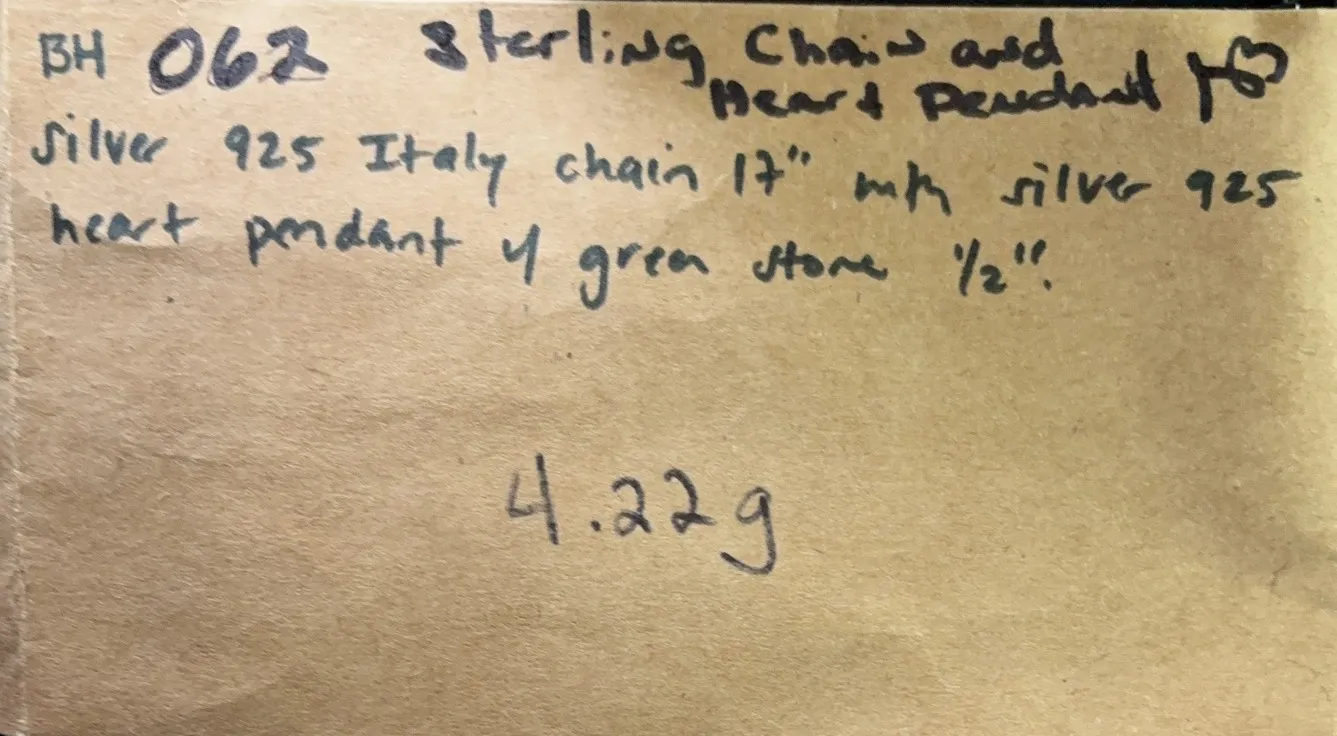 BH 062 Sterling Chain and
Heart Pendant
silver 925 Italy chain 17" with silver 925
heart pendant w/ green stone 1/2".
4.22g